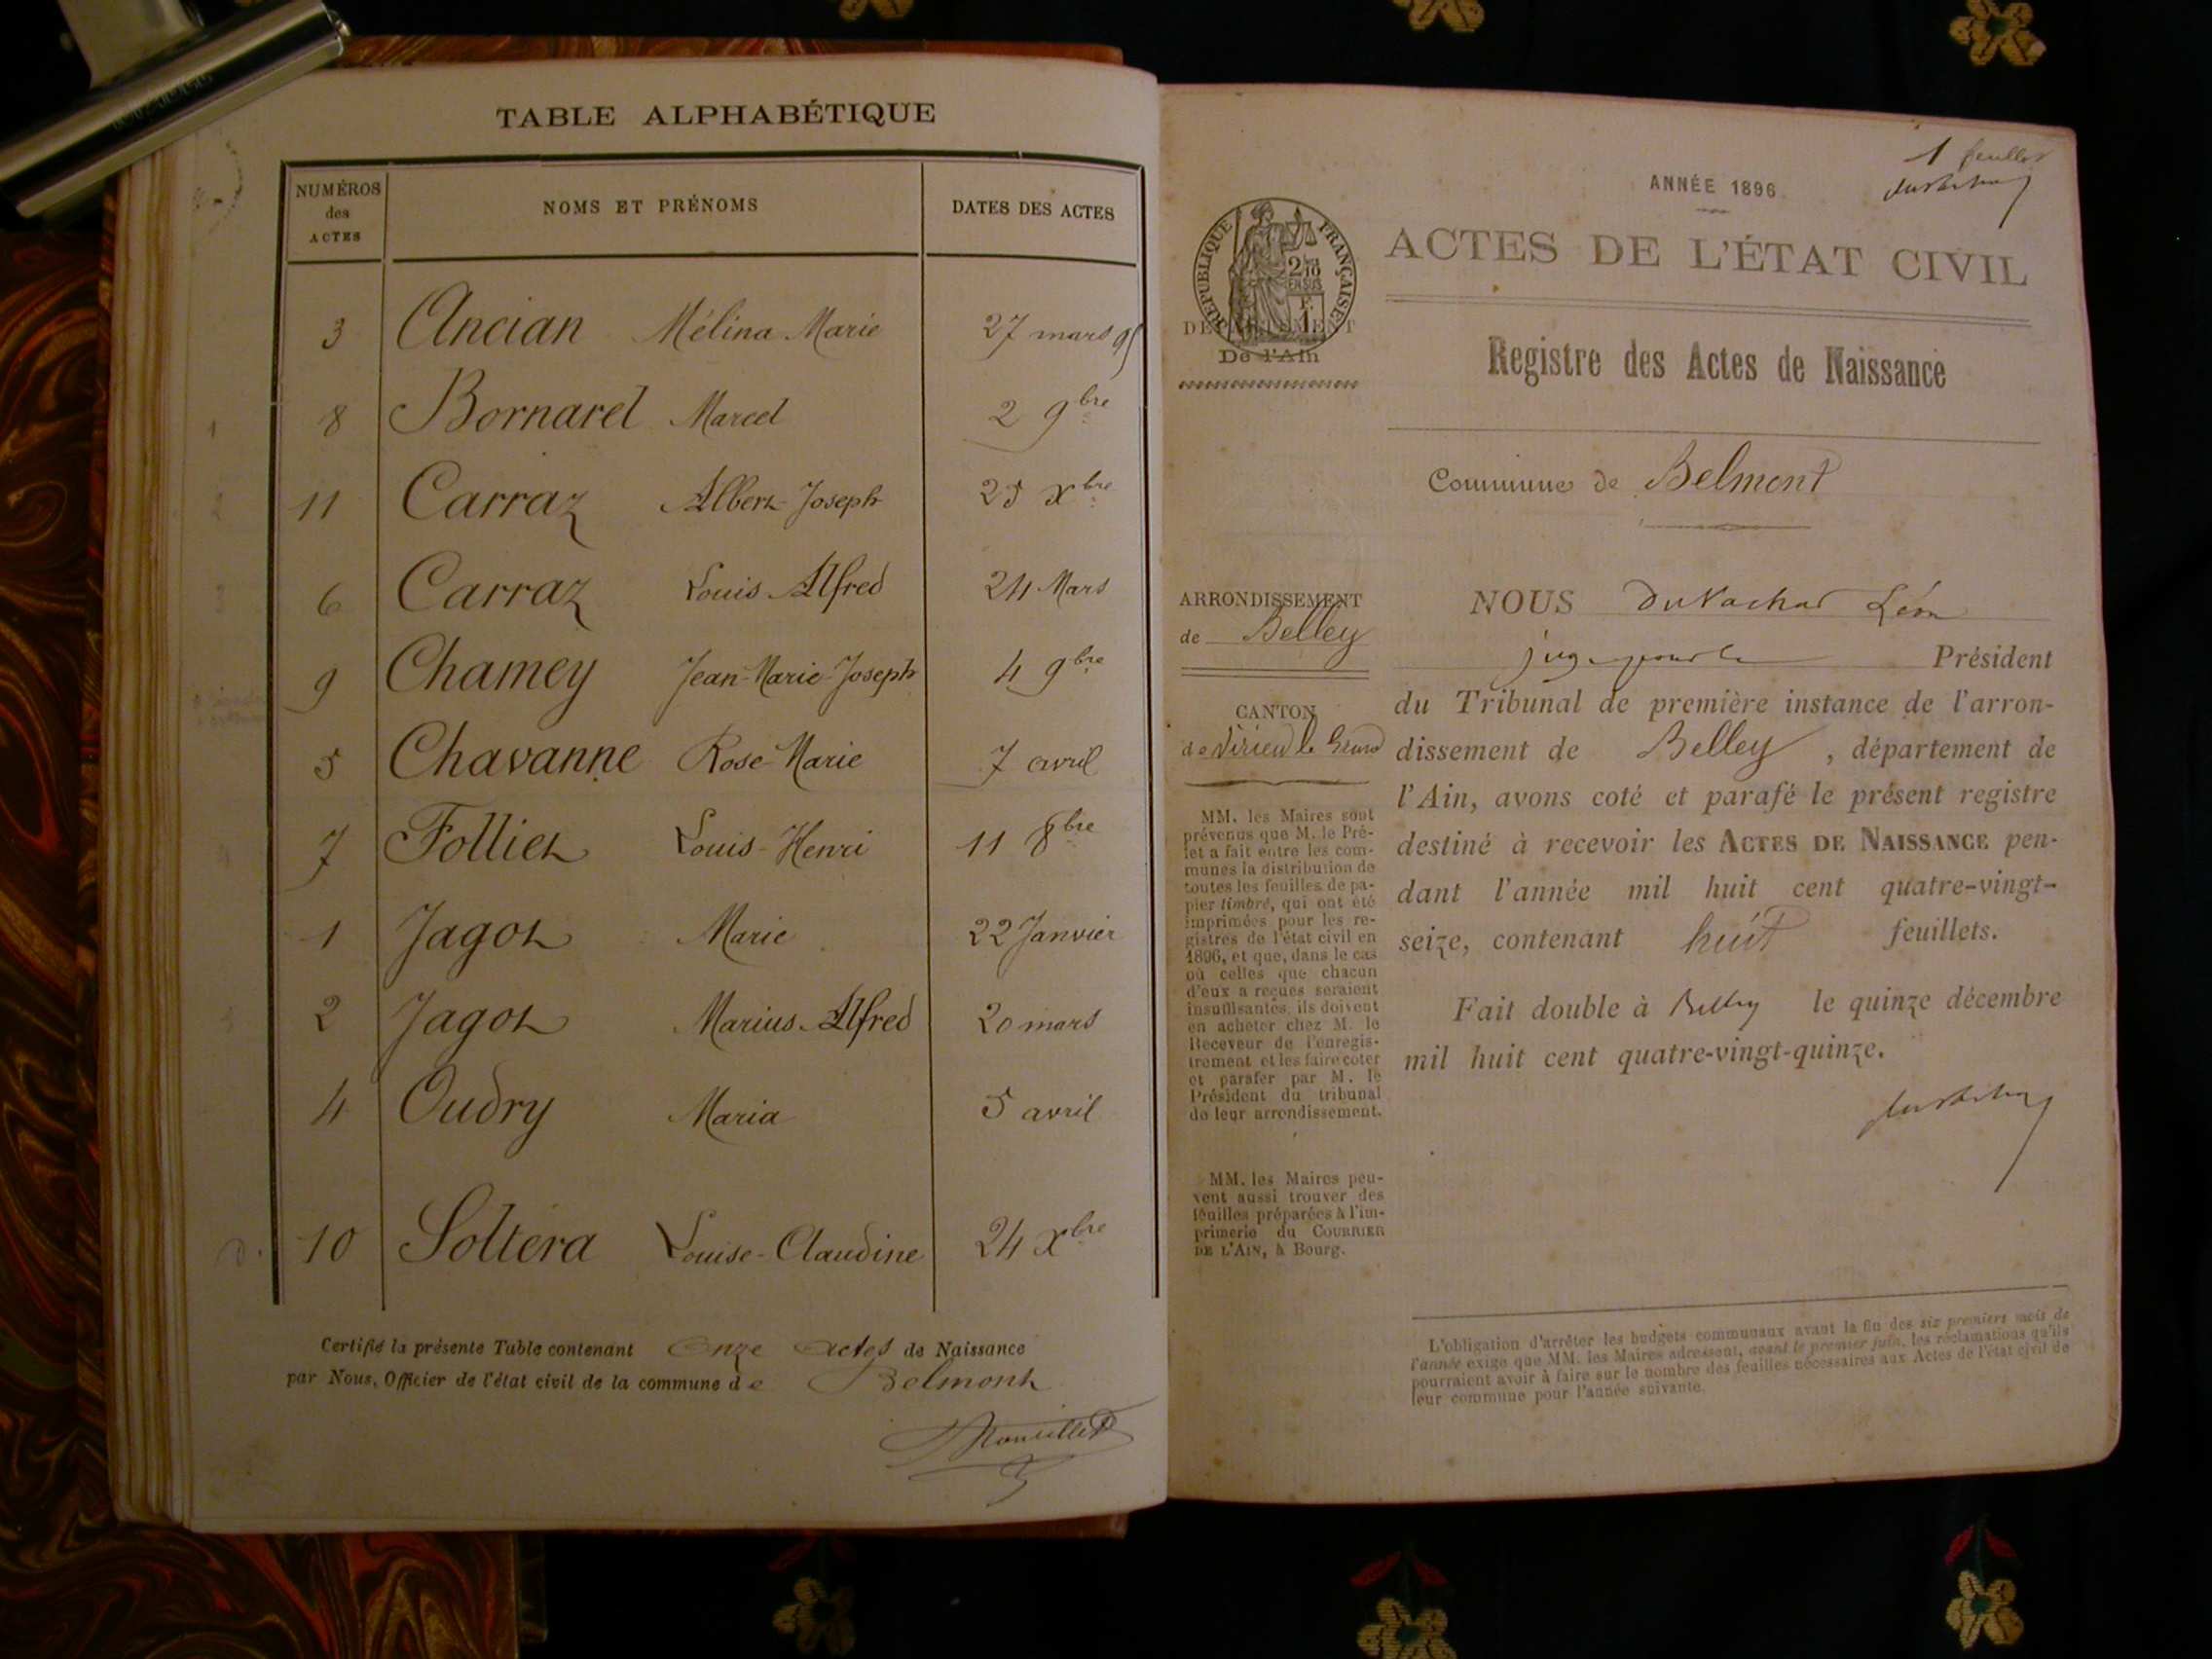 TABLE ALPHABÉTIQUE
NUMÉROS des ACTES
NOMS ET PRÉNOMS
DATES DES ACTES
3 Ancian Mélina Marie 27 mars 95
8 Bornarel Marcel 2 9bre
11 Carraz Albert Joseph 25 Xbre
6 Carraz Louis Alfred 24 Mars
9 Chamey Jean-Marie-Joseph 4 9bre
5 Chavanne Rose-Marie 7 avril
7 Folliet Louis-Henri 11 8bre
1 Jagot Marie 22 Janvier
2 Jagot Marius Alfred 20 mars
4 Oudry Maria 5 avril
10 Soltera Louise-Claudine 24 Xbre
Certifié la présente Table contenant Onze actes de Naissance
par Nous, Officier de l'état civil de la commune de Belmont
1 feuillet
ANNÉE 1896
RÉPUBLIQUE FRANÇAISE
2/10
EN SUS
F.
1
DÉPARTEMENT
De l'Ain
ACTES DE L'ÉTAT CIVIL
Registre des Actes de Naissance
Commune de Belmont
ARRONDISSEMENT
de Belley
CANTON
de Virieu le Grand
MM. les Maires sont
prévenus que M. le Pré-
fet a fait entre les com-
munes la distribution de
toutes les feuilles de pa-
pier timbré, qui ont été
imprimées pour les re-
gistres de l'état civil en
1896, et que, dans le cas
où celles que chacun
d'eux a reçues seraient
insuffisantes, ils doivent
en acheter chez M. le
Receveur de l'enregis-
trement et les faire coter
et parafer par M. le
Président du tribunal
de leur arrondissement.
MM. les Maires peu-
vent aussi trouver des
feuilles préparées à l'im-
primerie du COURRIER
DE L'AIN, à Bourg.
NOUS Léon
juge pour le Président
du Tribunal de première instance de l'arron-
dissement de Belley, département de
l'Ain, avons coté et parafé le présent registre
destiné à recevoir les ACTES DE NAISSANCE pen-
dant l'année mil huit cent quatre-vingt-
seize, contenant huit feuillets.
Fait double à Belley le quinze décembre
mil huit cent quatre-vingt-quinze.
L'obligation d'arrêter les budgets communaux avant la fin des six premiers mois de
l'année exige que MM. les Maires adressent, avant le premier juin, les réclamations qu'ils
pourraient avoir à faire sur le nombre des feuilles nécessaires aux Actes de l'état civil de
leur commune pour l'année suivante.